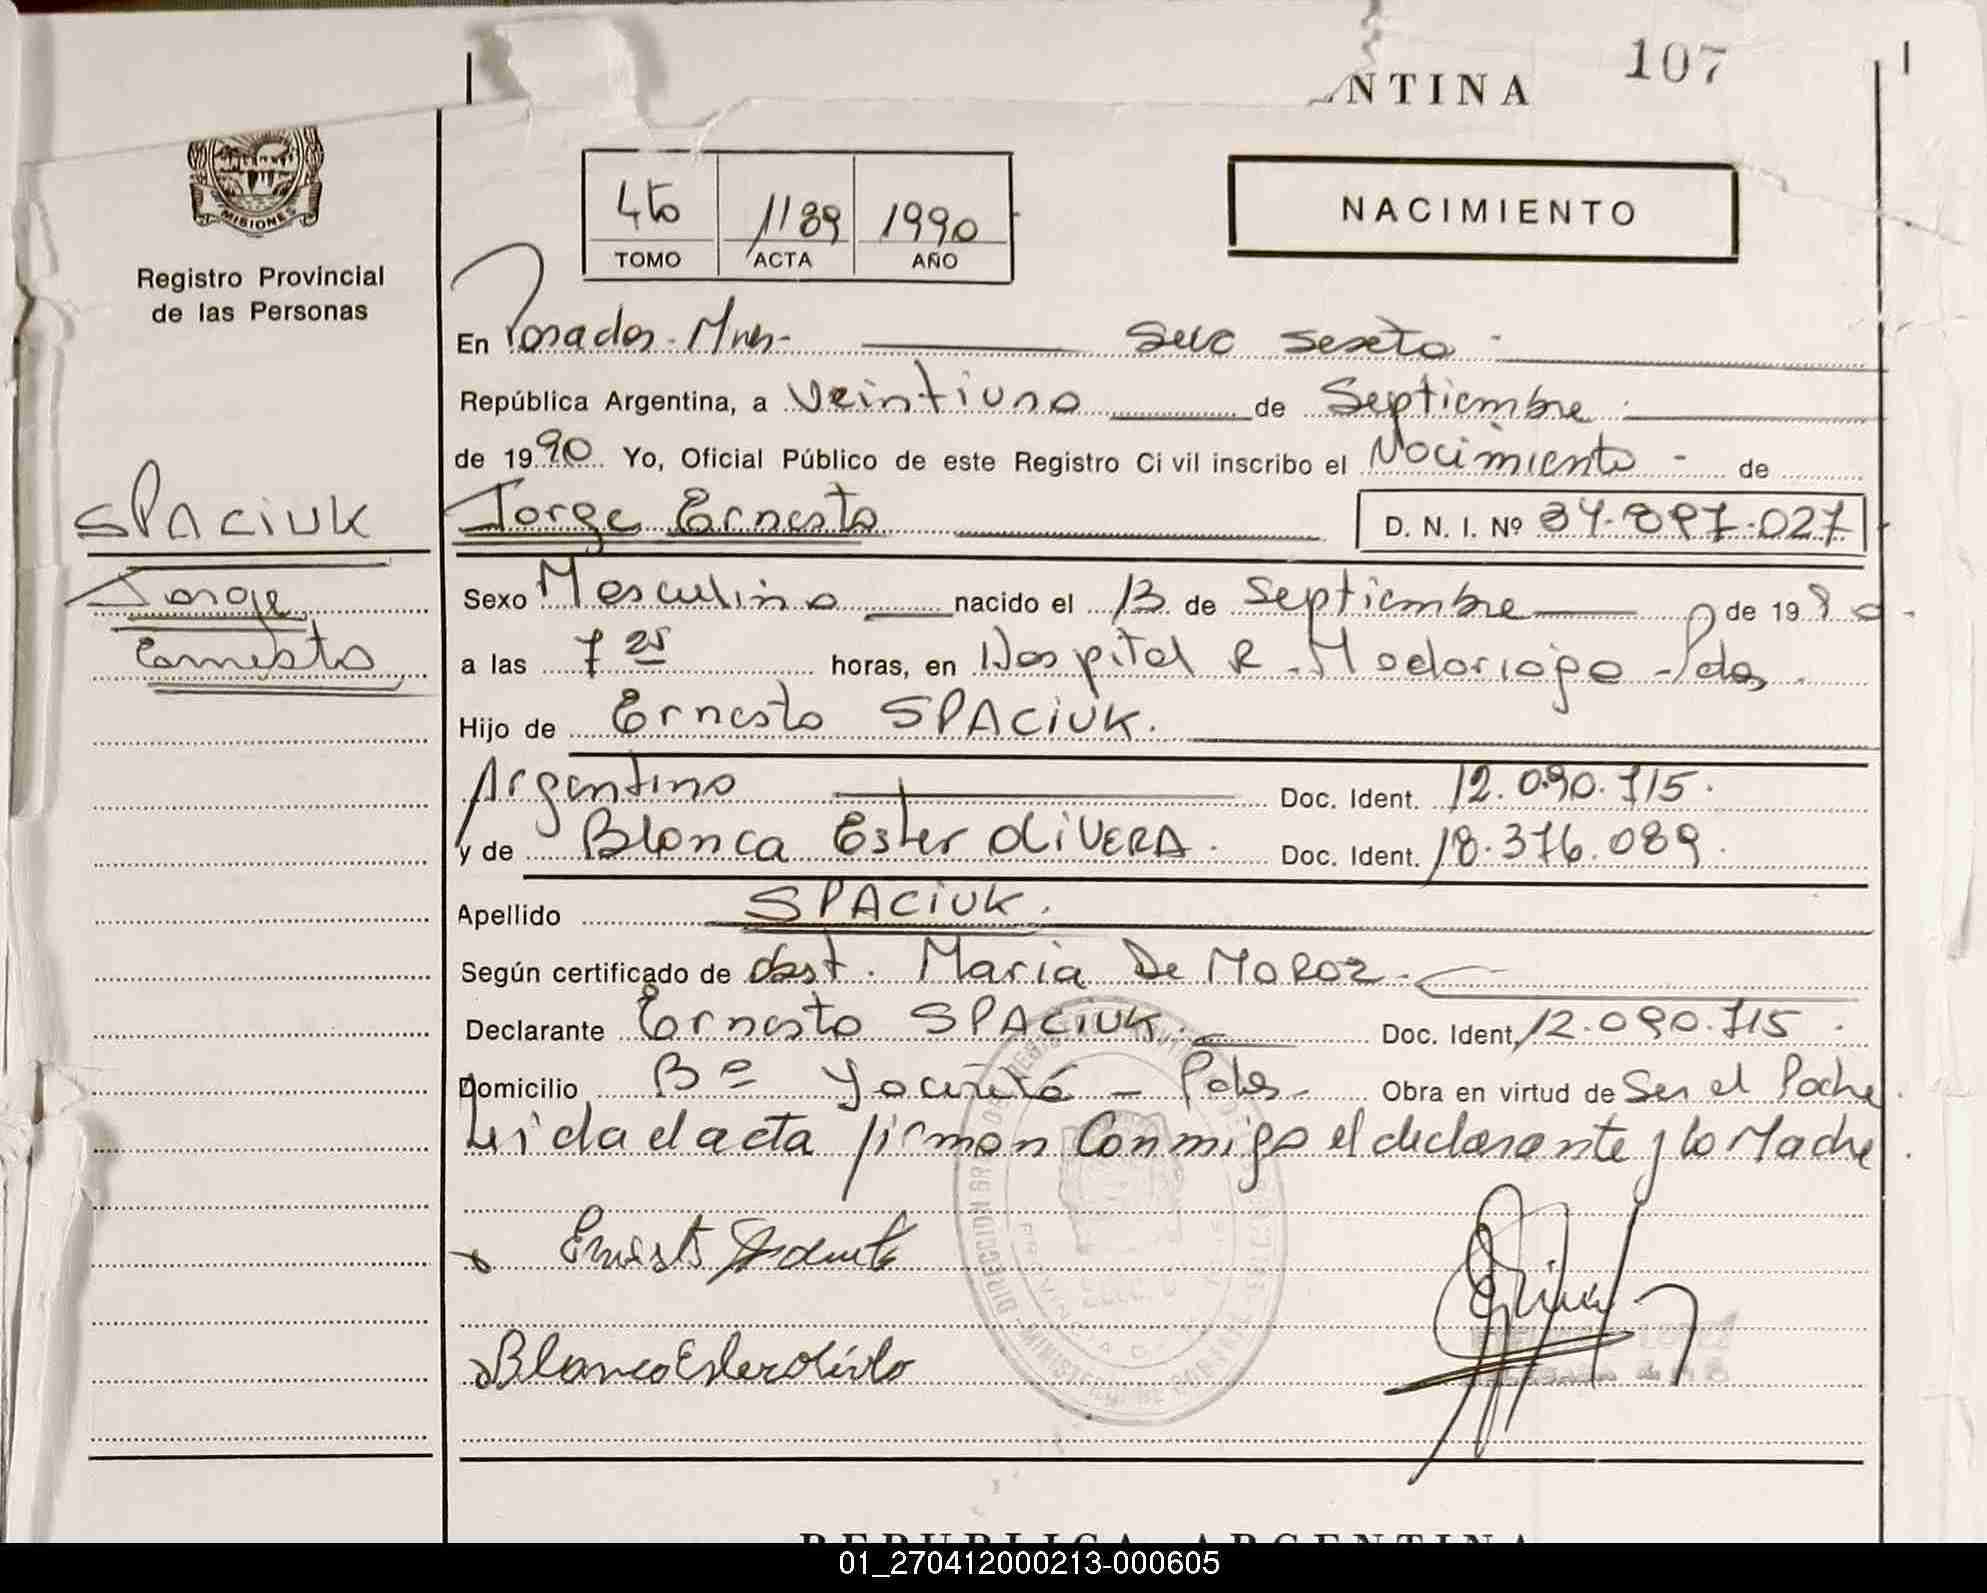 NTINA
107
MISIONES
Registro Provincial
de las Personas
4to 1189 1990
TOMO ACTA AÑO
NACIMIENTO
En Posadas - Mnes - Secc Sexta -
República Argentina, a Veintiuno de Septiembre
de 1990 Yo, Oficial Público de este Registro Civil inscribo el Nacimiento - de
SPACIUK
Jorge
Ernesto
Jorge Ernesto D. N. I. Nº 34.897.027
Sexo Masculino nacido el 13 de Septiembre de 1990
a las 7 25 horas, en Hospital R. Madariaga - Pdas.
Hijo de Ernesto SPACIUK.
Argentino Doc. Ident. 12.090.715.
y de Blanca Ester OLIVERA. Doc. Ident. 18.376.089.
Apellido SPACIUK.
Según certificado de Obst. Maria De Moroz.
Declarante Ernesto SPACIUK. Doc. Ident. 12.090.715.
Domicilio Bº Yaciretá - Pdas. Obra en virtud de Ser el Padre
Leida el acta firman conmigo el declarante y la Madre.
Blanca Ester
REPUBLICA ARGENTINA
01_270412000213-000605